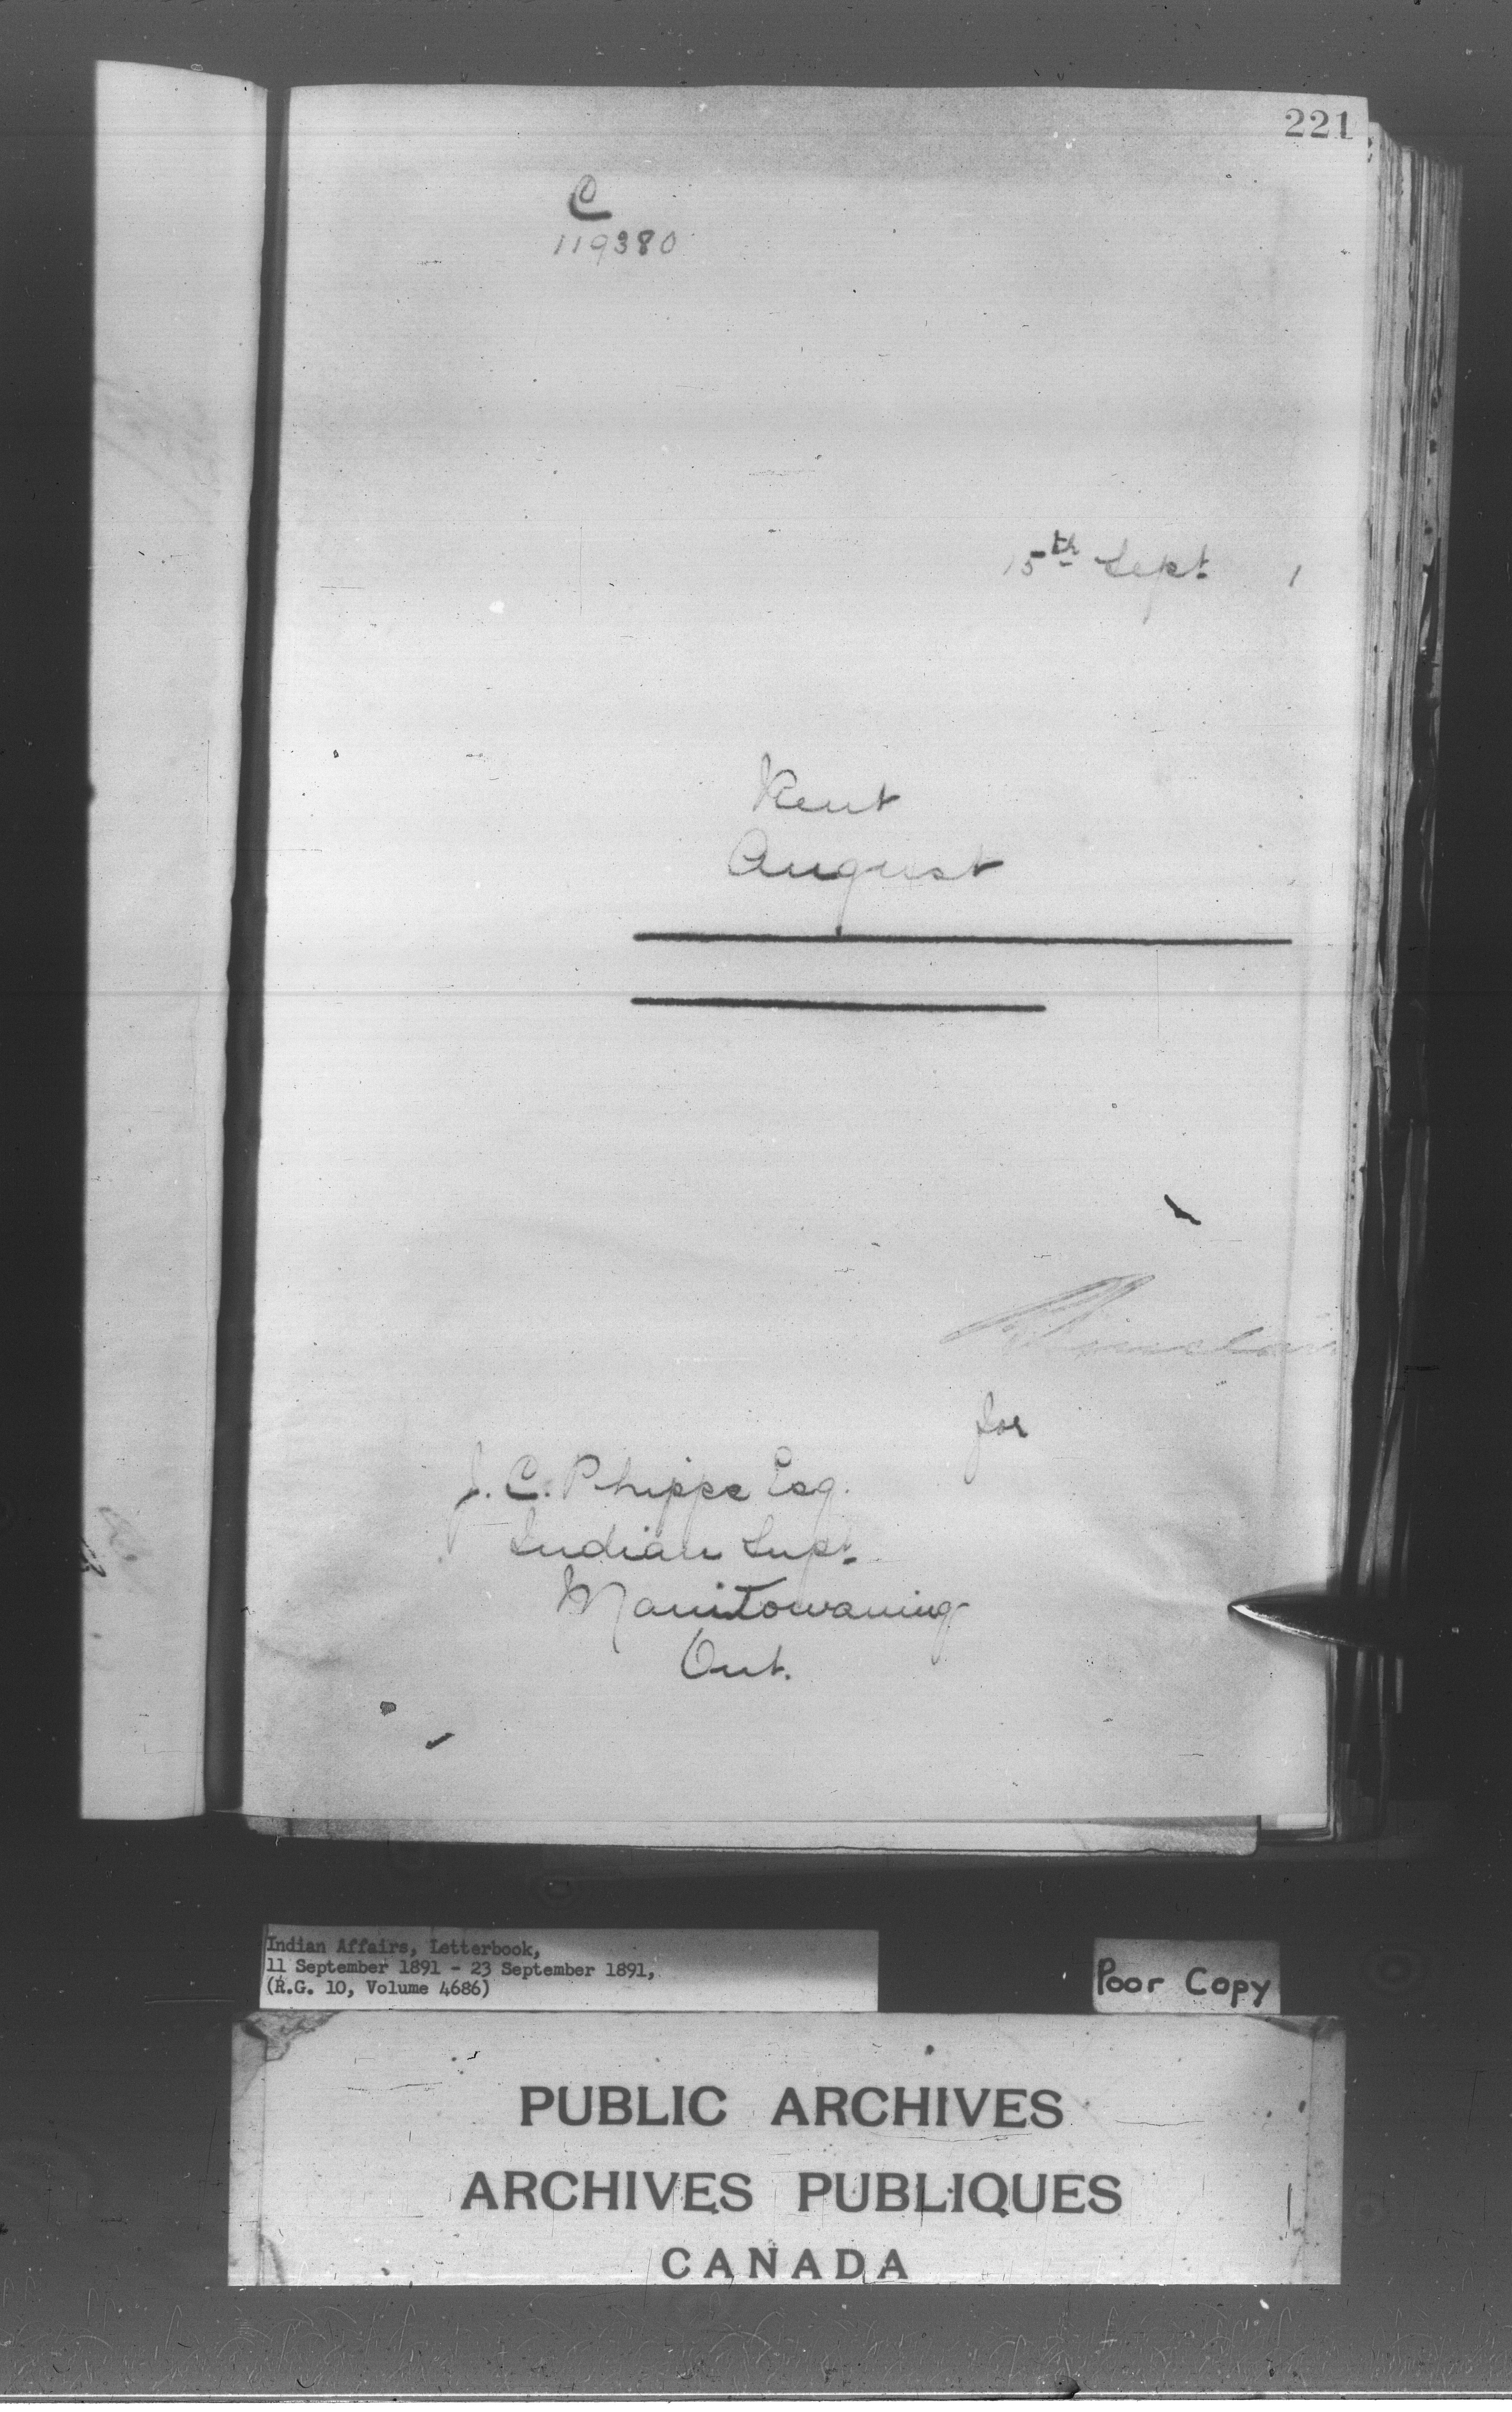 221
C
119380
15th Sept 1
Rent
August
for
J. C. Phipps Esq.
Indian Supt.
Manitowaning
Ont.
Indian Affairs, Letterbook,
11 September 1891 - 23 September 1891,
(R.G. 10, Volume 4686)
Poor Copy
PUBLIC ARCHIVES
ARCHIVES PUBLIQUES
CANADA